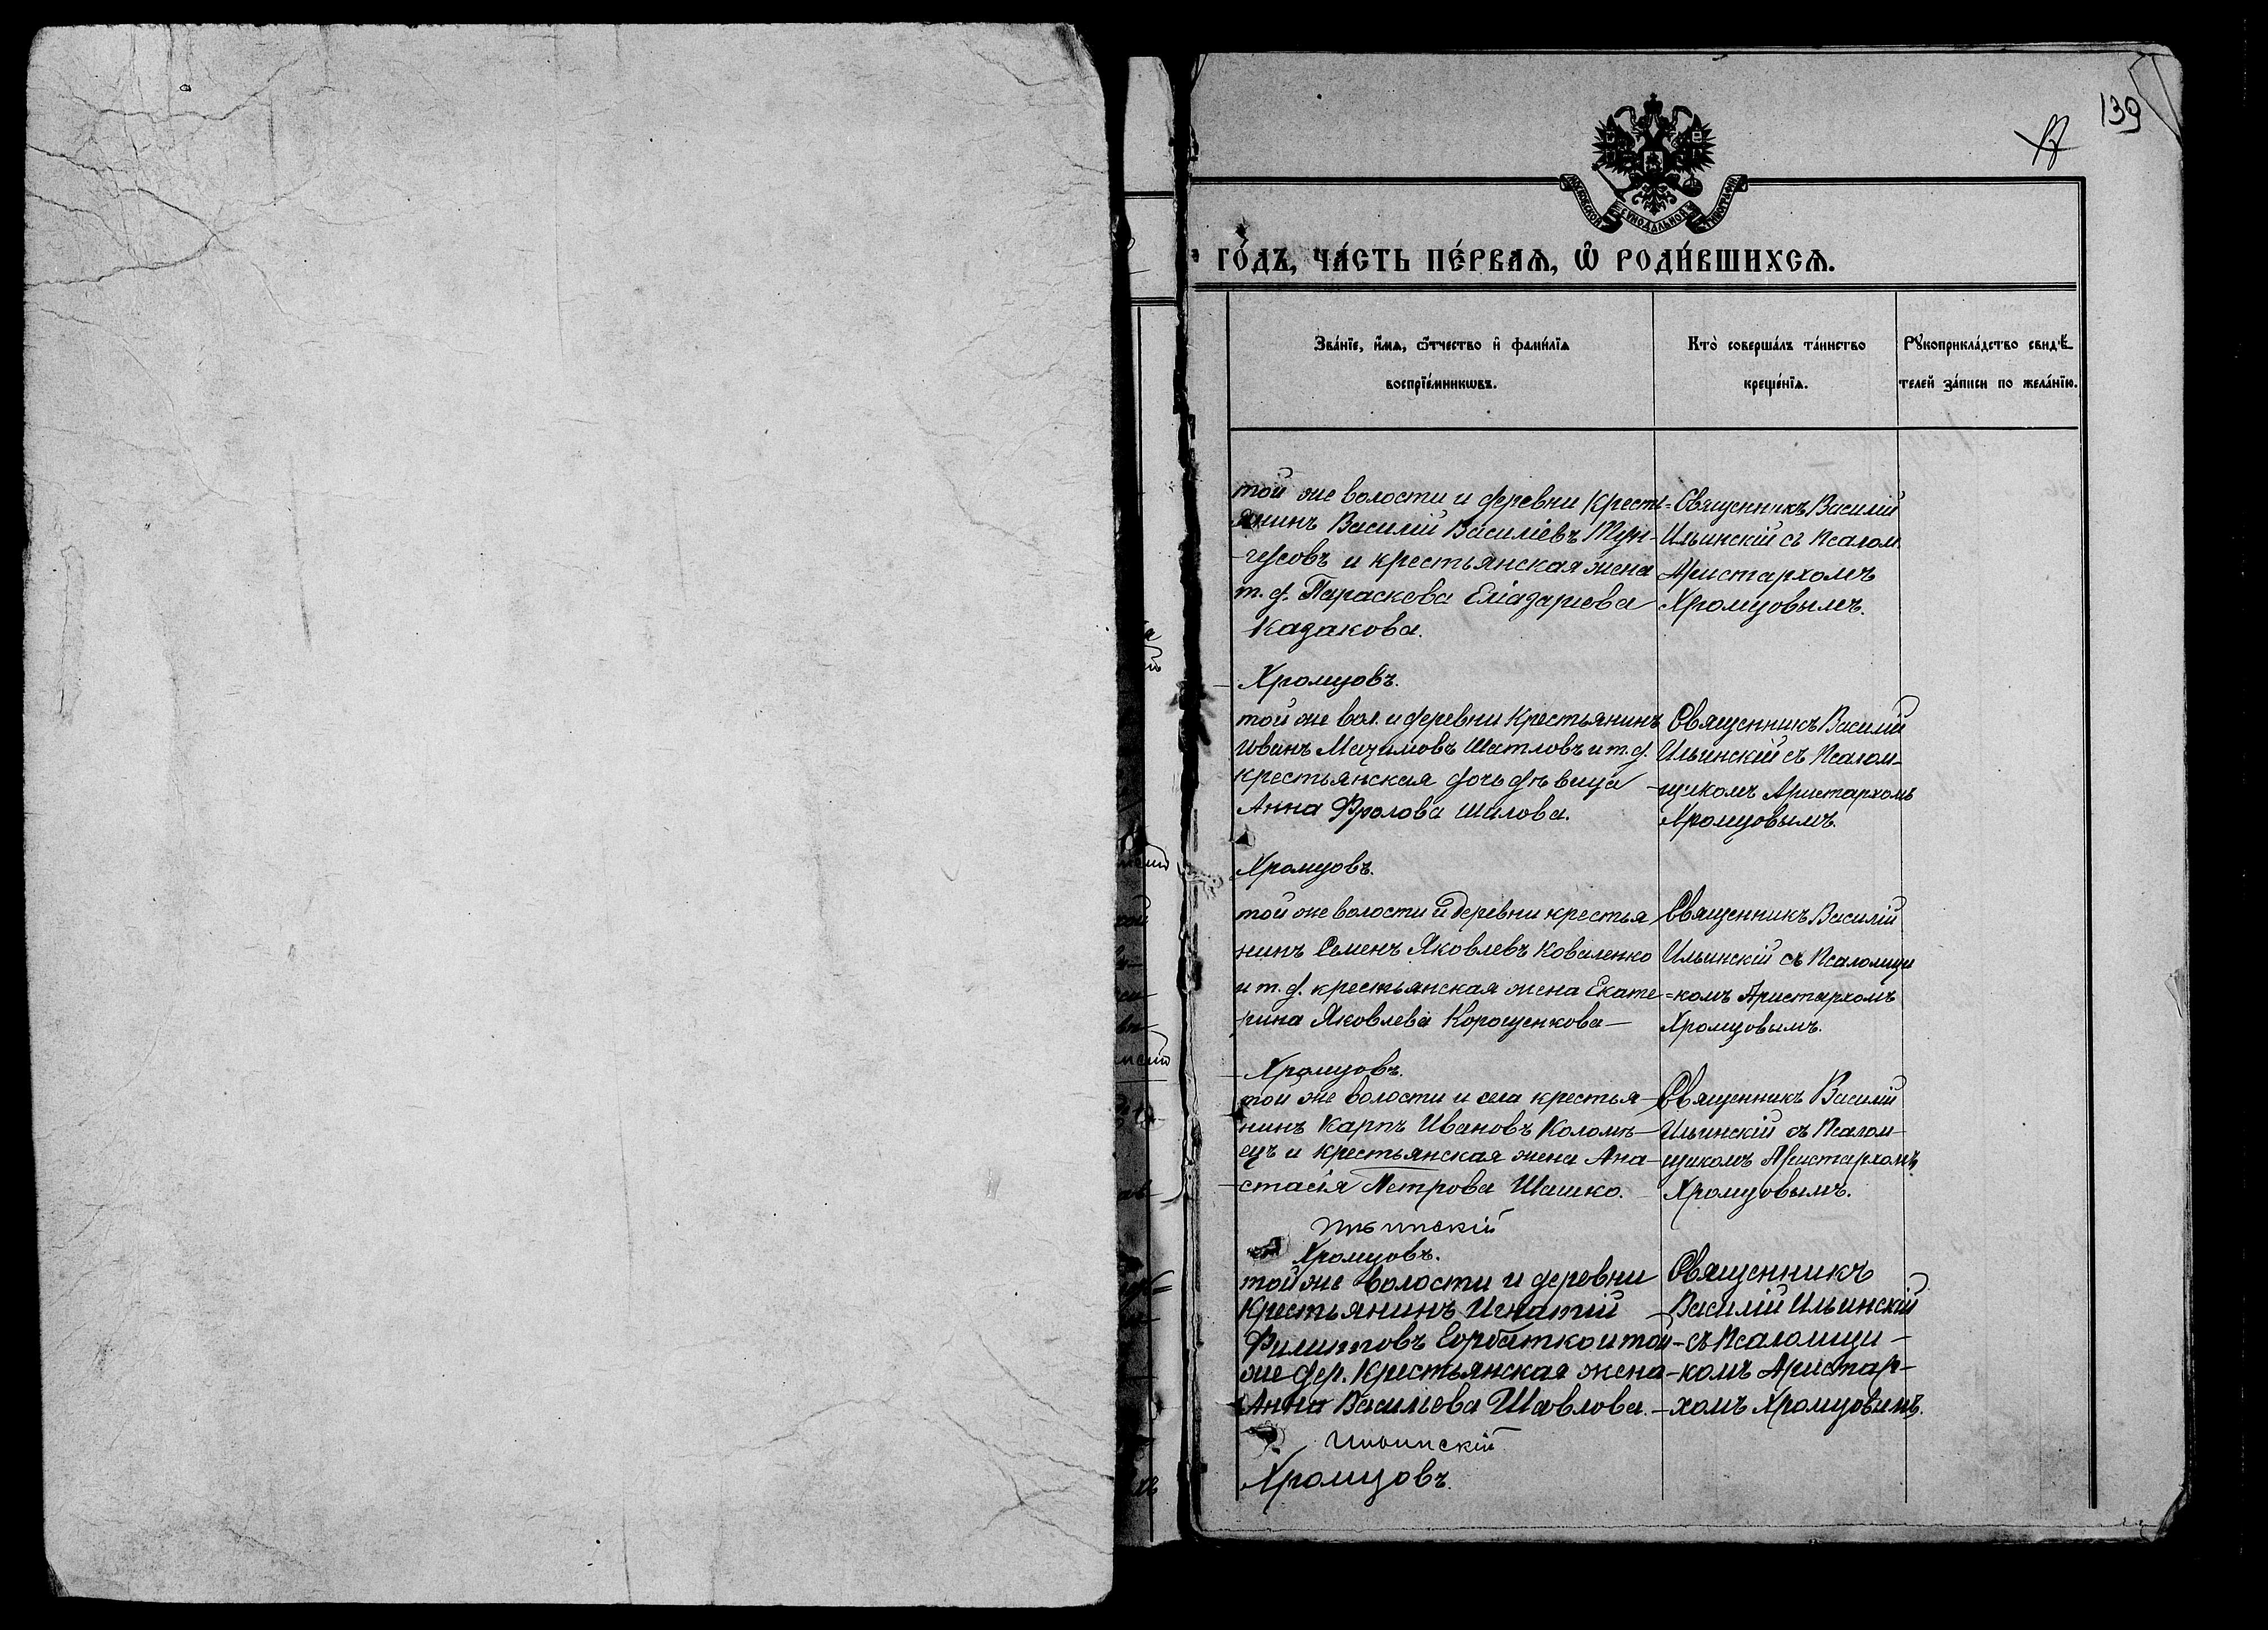 139
МОСКОВСКОЙ СѴНОДАЛЬНОЙ ТИПОГРАФІИ
ГО́ДЪ, ЧА́СТЬ ПЕ́РВАѦ, Ѽ РОДИ́ВШИХСѦ.
Зва́нїе, и҆́мѧ, ѻ҆́тчество и҆ фами́лїѧ
воспрїе́мникѡвъ.
Кто̀ соверша́лъ та́инство
креще́нїѧ.
Рꙋкоприкла́дство свидѣ́-
телей за́писи по жела́нїю.
той же волости и деревни Кресть-
янинъ Василій Василіевъ Тун-
-гусовъ и крестьянская жена
т. д. Параскева Еліазарова
Казакова.
Священникъ Василій
Ильинскій съ Псалом.
Аристархомъ
Хромцовымъ.
Хромцовъ.
той же вол. и деревни Крестьянинъ
Иванъ Шатловъ и т. д.
крестьянская дочь дѣвица
Анна Фролова Шилова.
Священникъ Василій
Ильинскій съ Псалом-
-щикомъ Аристархомъ
Хромцовымъ.
Хромцовъ.
той же волости и деревни крестья
нинъ Семенъ Яковлевъ Коваленко
и т. д. крестьянская жена Екате
рина Яковлева Корощенкова
Священникъ Василій
Ильинскій съ Псаломщи
=комъ Аристархомъ
Хромцовымъ.
Хромцовъ.
той же волости и села крестья-
нинъ Карпъ Ивановъ Коломі-
ецъ и крестьянская жена Ана-
-стасія Петрова Шашко.
Священникъ Василій
Ильинскій съ Псалом-
щикомъ Аристархомъ
Хромцовымъ.
Ильинскій
Хромцовъ.
той же волости и деревни
Крестьянинъ Игнатій
Филипповъ Горбатко и той
же дер. Крестьянская жена
Анна Васильева Шавлова.
Священникъ
Василій Ильинскій
-съ Псаломщи-
-комъ Аристар-
-хомъ Хромцовымъ.
Ильинскій
Хромцовъ.